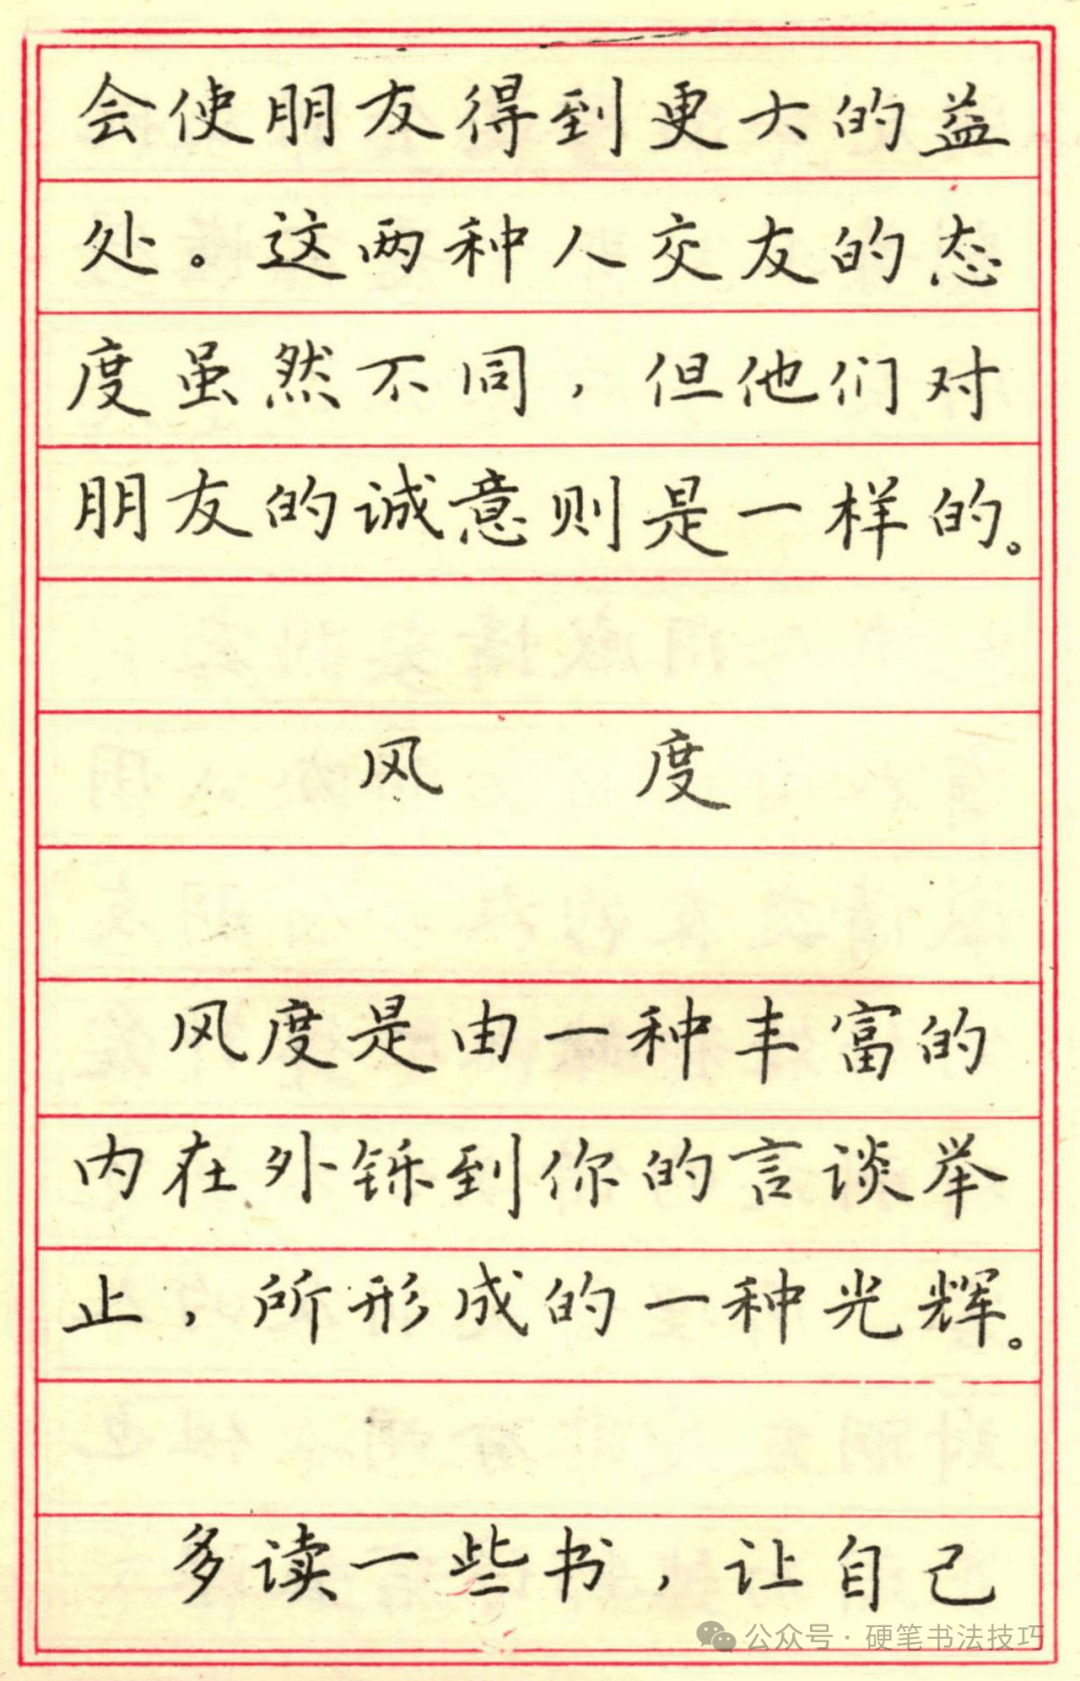 会使朋友得到更大的益
处。这两种人交友的态
度虽然不同，但他们对
朋友的诚意则是一样的。
风度
风度是由一种丰富的
内在外铄到你的言谈举
止，所形成的一种光辉。
多读一些书，让自己
公众号·硬笔书法技巧